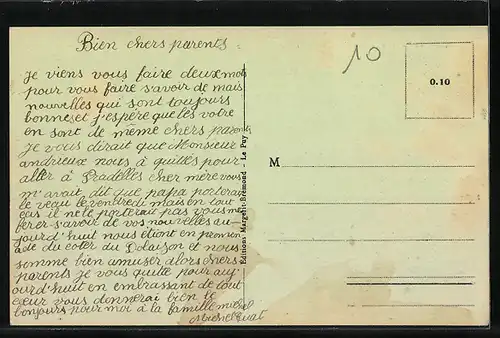 Bien chers parents
Je viens vous faire deux mots
pour vous faire savoir de mais
nouvelles qui sont toujours
bonneset j'espère que les votre
en sont de même chers parents
Je vous dirait que Monsieur
andrieux nous à quittés pour
aller à Pradelles cher mère vous
m'avait dit que papa porterai
le veau le vendredi mais en tout
cas il ne le porterait pas vous me
ferer s'avoir de vos nouvelles au-
jourd'huit nous étiont en promin
ade du coter du et nous
somme bien amuser alors chers
parents je vous quitte pour auj
ourd'huit en embrassant de tout
cœur vous donnerai bien le
bonjours pour moi à la famille michel
Michel
Editions Margerit-Brémond - Le Puy
10
0.10
M